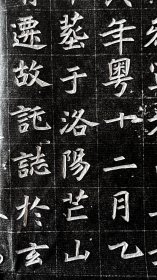 年粤十二月乙
葬于洛陽芒山
遷故託誌於玄